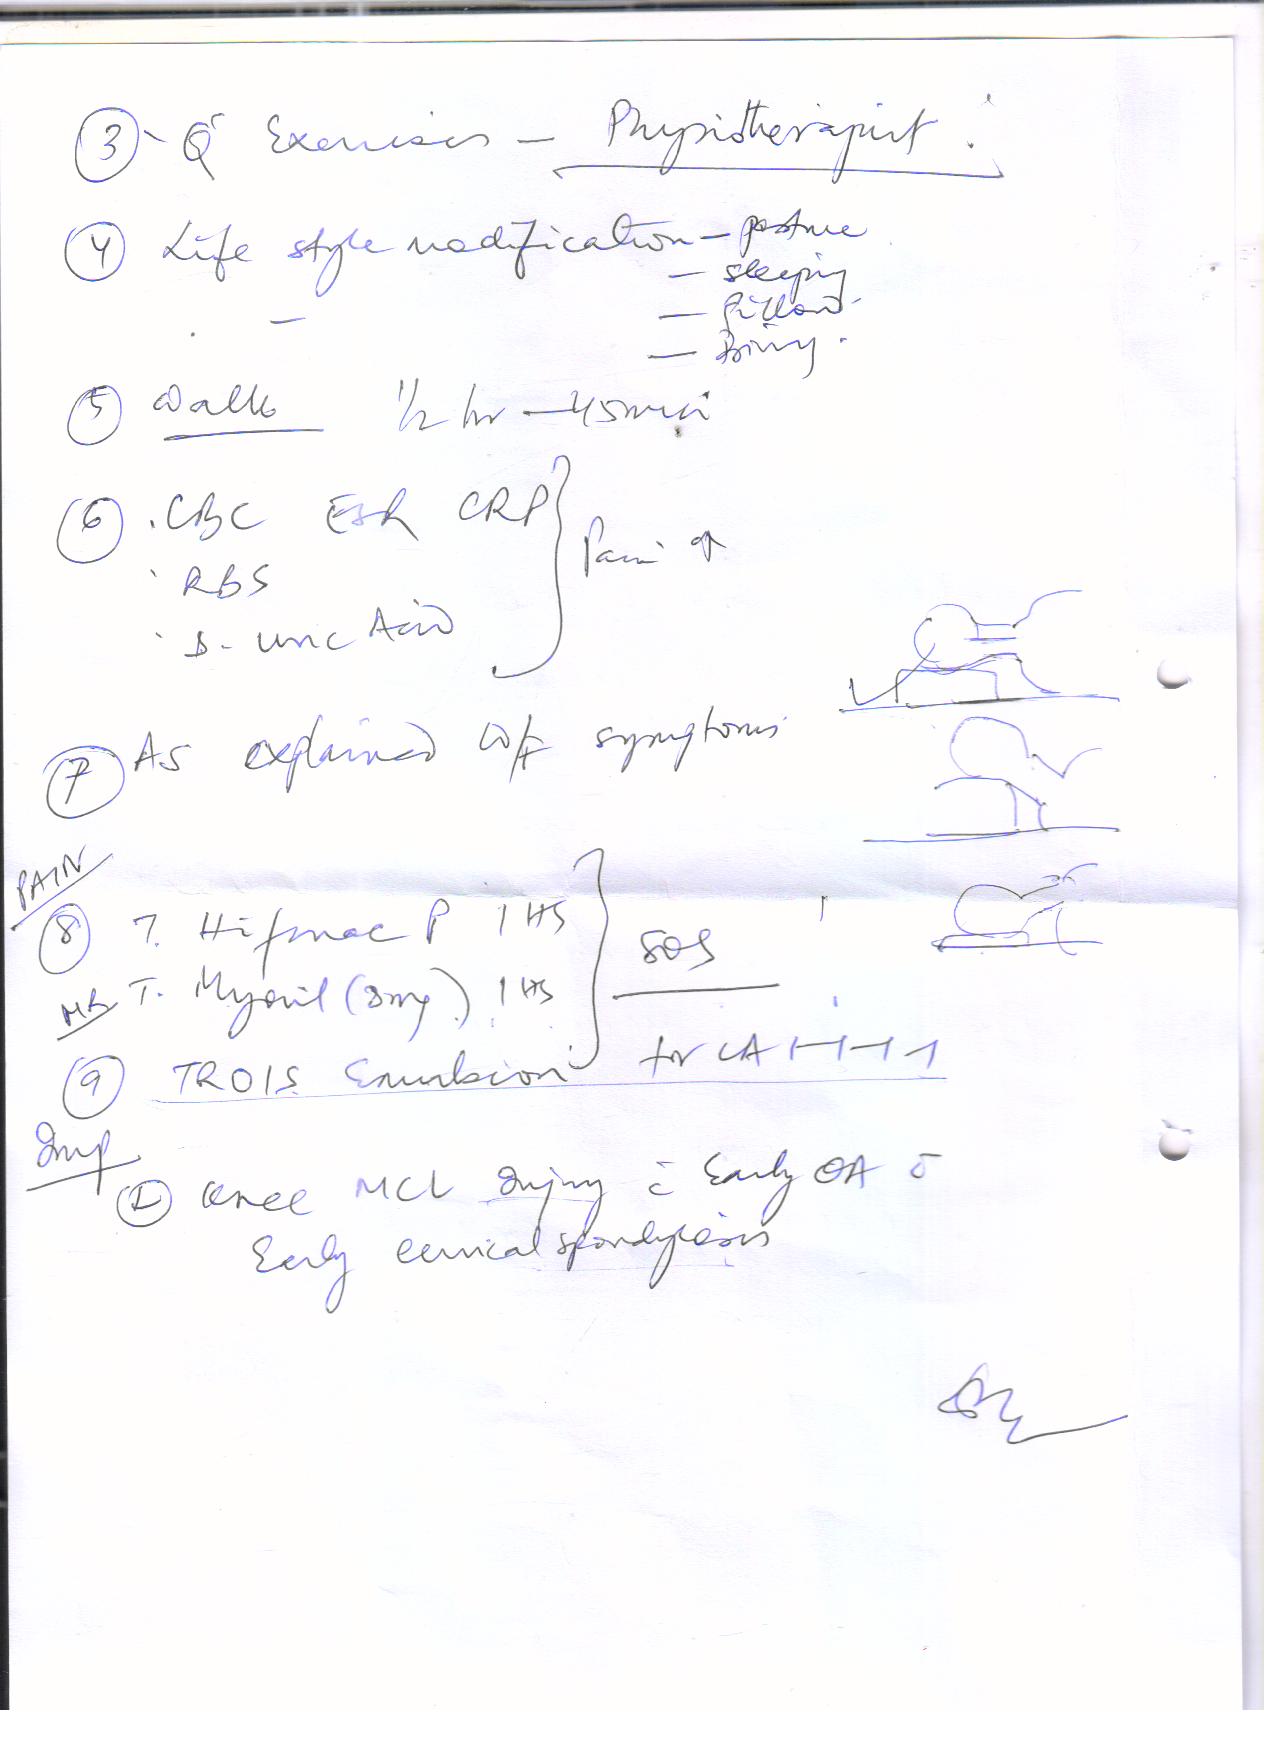 ③ - Q Exercises - Physiotherapist
④ Life style modification - posture
- sleeping
- Pillow
-
⑤ Walk 1/2 hr - 45 min
⑥ . CBC ESR CRP
. RBS
. S. Uric Acid
Pain ↑
⑦ As explained symptoms
PAIN
⑧ T. Hifenac P 1 HS
T. Myoril (8mg) 1 HS
SOS
⑨ TROIS Emulsion for LA 1-1-1-1
Imp
Knee MCL Injury c̄ Early OA c̄
Early cervical spondylosis